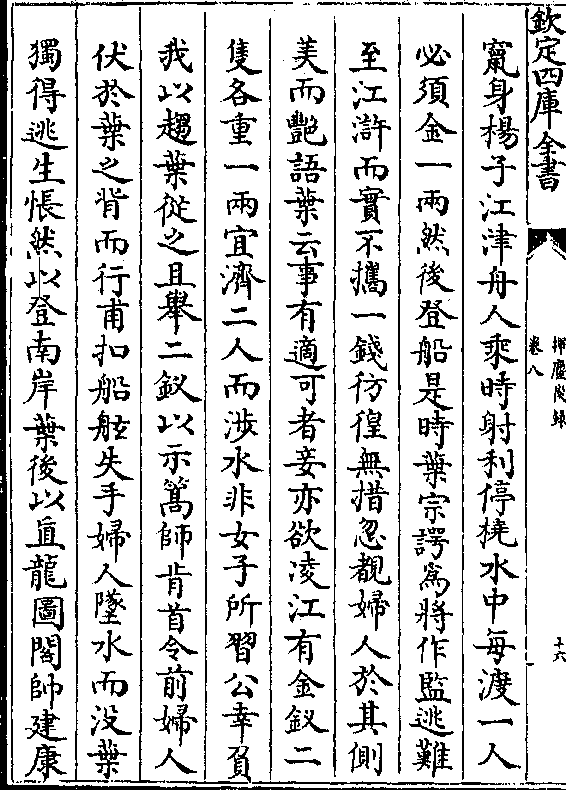 欽定四庫全書
揮麈後錄
卷八
十六
竄身楊子江津舟人乘時射利停橈水中每渡一人
必須金一兩然後登船是時葉宗諤為將作監逃難
至江滸而實不攜一錢彷徨無措忽覩婦人於其側
美而艷語葉云事有適可者妾亦欲凌江有金釵二
隻各重一兩宜濟二人而涉水非女子所習公幸負
我以趨葉從之且舉二釵以示篙師肯首令前婦人
伏於葉之背而行甫扣船舷失手婦人墜水而没葉
獨得逃生悵然以登南岸葉後以直龍圖閣帥建康